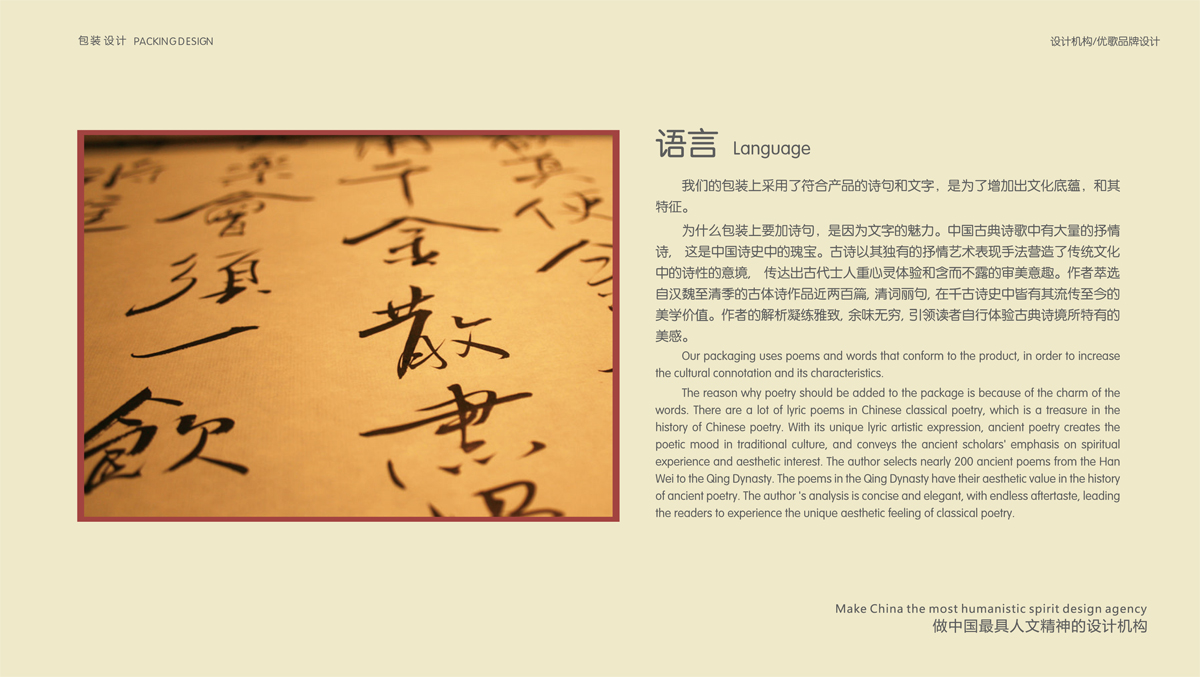 包装设计 PACKING DESIGN
设计机构/优歌品牌设计
会
須
一
飲
千
金
散
盡
语言 Language
我们的包装上采用了符合产品的诗句和文字，是为了增加出文化底蕴，和其
特征。
为什么包装上要加诗句，是因为文字的魅力。中国古典诗歌中有大量的抒情
诗， 这是中国诗史中的瑰宝。古诗以其独有的抒情艺术表现手法营造了传统文化
中的诗性的意境， 传达出古代士人重心灵体验和含而不露的审美意趣。作者萃选
自汉魏至清季的古体诗作品近两百篇, 清词丽句, 在千古诗史中皆有其流传至今的
美学价值。作者的解析凝练雅致, 余味无穷, 引领读者自行体验古典诗境所特有的
美感。
Our packaging uses poems and words that conform to the product, in order to increase
the cultural connotation and its characteristics.
The reason why poetry should be added to the package is because of the charm of the
words. There are a lot of lyric poems in Chinese classical poetry, which is a treasure in the
history of Chinese poetry. With its unique lyric artistic expression, ancient poetry creates the
poetic mood in traditional culture, and conveys the ancient scholars' emphasis on spiritual
experience and aesthetic interest. The author selects nearly 200 ancient poems from the Han
Wei to the Qing Dynasty. The poems in the Qing Dynasty have their aesthetic value in the history
of ancient poetry. The author 's analysis is concise and elegant, with endless aftertaste, leading
the readers to experience the unique aesthetic feeling of classical poetry.
Make China the most humanistic spirit design agency
做中国最具人文精神的设计机构